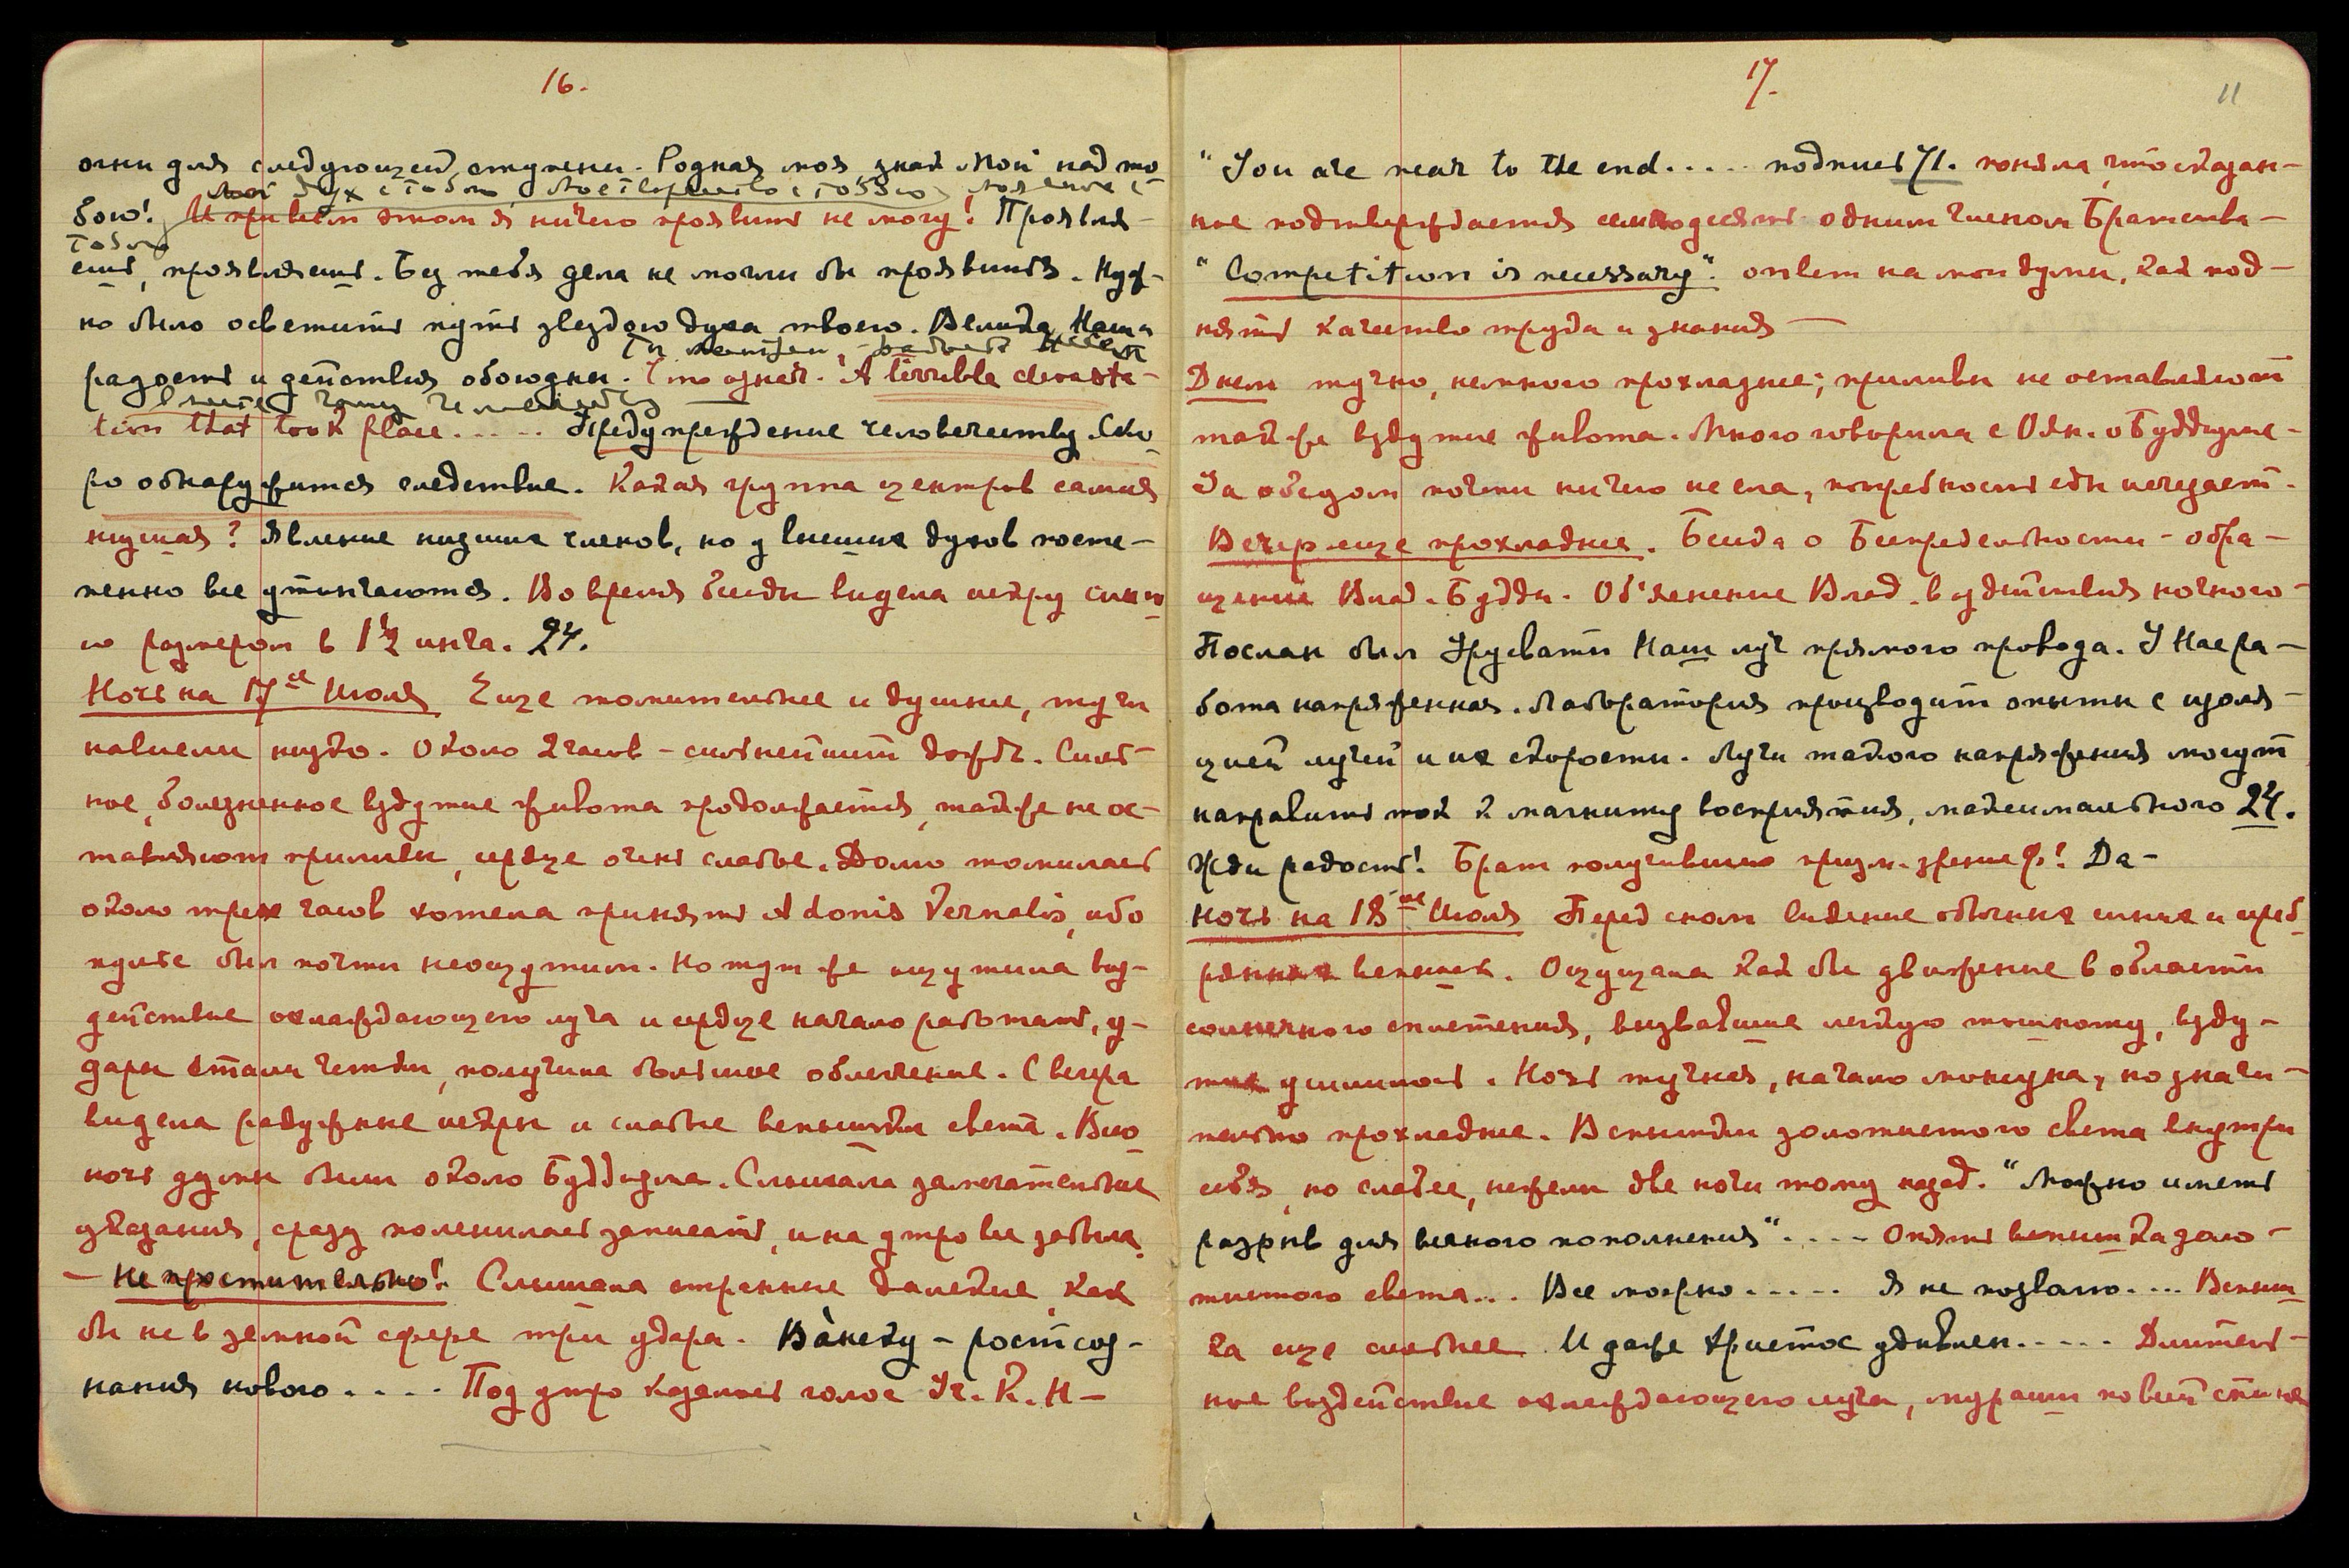 16.
огни для следующей ступени. Родная моя, знак Мой над то
Мой дух с тобою, Мое творчество с тобою,
бою! И при всем этом я ничего проявить не могу! Проявля-
тобою
ешь, проявляешь. Без тебя дела не могли бы проявить. Нуж-
но было осветить путь звездою духа твоего. Велика Наша
радость и действия обоюдны. Что знак. "A terrible devasta-
tion that took place..... Предупреждение человечеству. Ско-
ро обнаружится следствие. Какая группа центров самая
низшая? Явление низших членов, но у высших духов посте-
пенно все утончаются. Во время беседы видела искру синю
ю размером в 1½ инча. 24.
Ночь на 17ое Июля Еще томительнее и душнее, тучи
нависли низко. Около 2 часов - сильнейший дождь. Силь-
ное, болезненное вздутие живота продолжается, также не ос-
тавляют приливы, сердце очень слабое. Долго томилась
около трех часов хотела принять Adonis Vernalis, ибо
пульс был почти неощутим. Но тут же ощутила воз-
действие охлаждающего луча и сердце начало работать, у-
дары стали четки, получила большое облегчение. С вечера
видела радужные искры и слабые вспышки света. Всю
ночь думы были около Буддизма. Слышала замечательные
указания, сразу поленилась записать, и на утро все забыла
- Не простительно! Слышала странные далекие, как
бы не в земной сфере три удара. Вànеку - рост соз-
нания нового.... Под утро казалось голос Уч. К.Н -
17.
11
"You are near to the end..... подпись 71. поняла, что сказан-
ное подтверждается семьюдесять одним членом Братства -
"Competition is necessary". ответ на мои думы, как под-
нять качество труда и знания —
Днем тучно, немного прохладнее; приливы не оставляют
также вздутие живота. Много говорила с Оян. о Буддизме -
За обедом почти ничего не ела, потребность еды исчезает.
Вечер еще прохладнее. Беседа о Беспредельности - обра-
щение Влад. Будды. Об'яснение Влад. воздействия ночного -
Послан был Урусвати Наш луч прямого провода. У Нас ра-
бота напряженная. Лаборатория производит опыты с изоля-
цией лучей и их скорости. Лучи такого напряжения могут
направить ток к магниту восприятия, максимального 24.
Жди радость! Брат получивший призм. зрение Ф.! Да -
Ночь на 18ое Июля Перед сном видение обычных синих и сереб
рянных вспышек. Ощущала как бы движение в области
солнечного сплетения, вызвавшие легкую тошноту, взду-
тие усилилось. Ночь тучная, начало монсуна, но значи-
тельно прохладнее. Вспышки золотистого света внутри
себя, но слабее, нежели две ночи тому назад. "Можно иметь
разрыв для всякого пополнения"..... Опять вспышка золо-
тистого света... Все можно..... Я не позволю.... Вспыш
ка еще слабее И даже Христос удивлен..... Длитель-
ное воздействие охлаждающего луча, мураши по всей спине